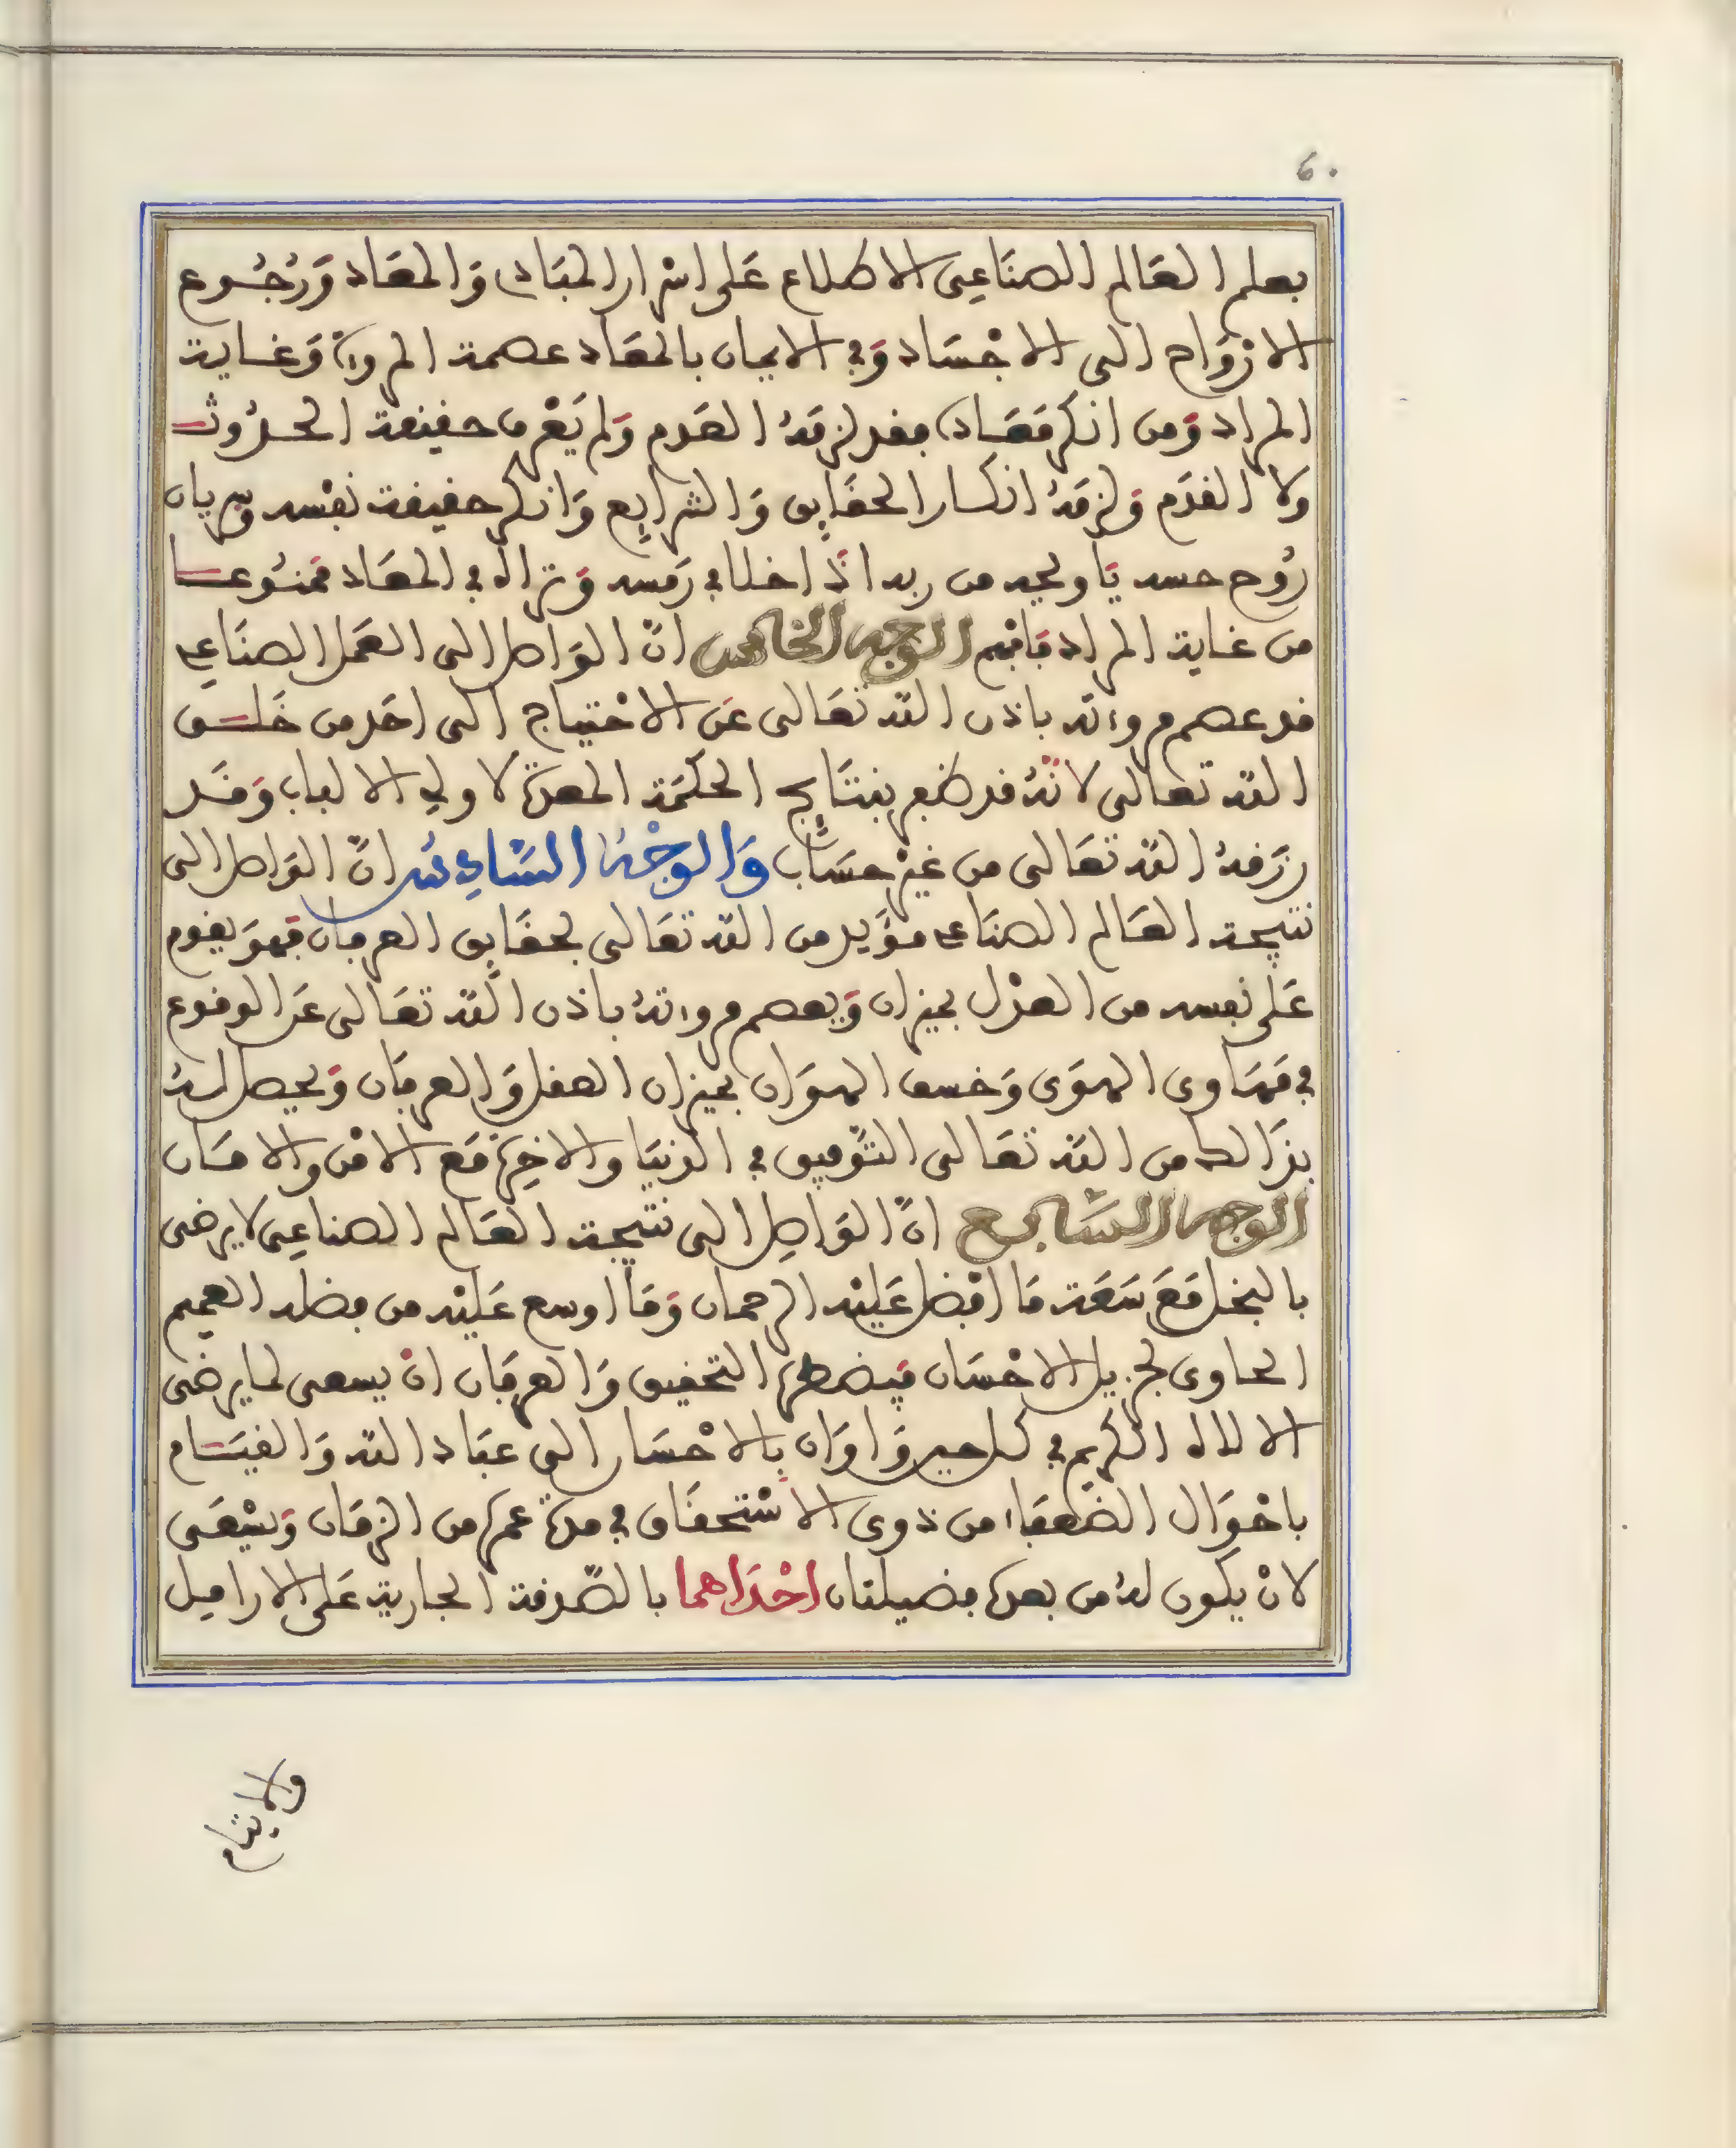 6.
بعلم العالم الصناعى الاطلاع على اسرار المبادى والمعاد ورجوع
الارواح الى الاجساد وفى الايمان بالمعاد عصمة المروءة وغاية
المراد ومن انكر معاده فقد لزمه العدم ولم يعرف حقيقة الحدوث
ولا القدم ولزمه انكسار الحقايق والشرايع وانكر حقيقة نفسه وسريان
روح حسه يا ويحه من ربه اذا خلا فى رمسه وتراه فى المعاد ممنوعا
من غاية المراد فافهم الوجه الخامس ان الواصل الى العمل الصناعى
قد عصم مروءته باذن الله تعالى عن الاحتياج الى احد من خلق
الله تعالى لانه قد ظفر بنتايج الحكمة المعدة لاولى الالباب وقد
رزقه الله تعالى من غير حساب والوجه السادس ان الواصل الى
نتيجة العالم الصناعى مؤيد من الله تعالى بحقايق العرفان فهو يقوم
على نفسه من العدل بميزان ويعصم مروءته باذن الله تعالى عن الوقوع
فى مهاوى الهوى وخسف الهوان بميزان العقل والعرفان ويحصل له
بذالك من الله تعالى التوفيق فى الدنيا والاخرة مع الامن والامان
الوجه السابع ان الواصل الى نتيجة العالم الصناعى لا يرضى
بالبخل مع سعة ما افضل عليه الرحمان وما اوسع عليه من فضله العميم
الحاوى لجزيل الاحسان فيضطره التحقيق والعرفان ان يسعى لما يرضى
الالاه الكريم فى كل حين واوان بالاحسان الى عباد الله والقيام
باحوال الضعفاء من ذوى الاستحقاق فى مدة عمره من الزمان ويسعى
لان يكون له من بعده فضيلتان احداهما بالصدقة الجارية على الاراميل
والايتام